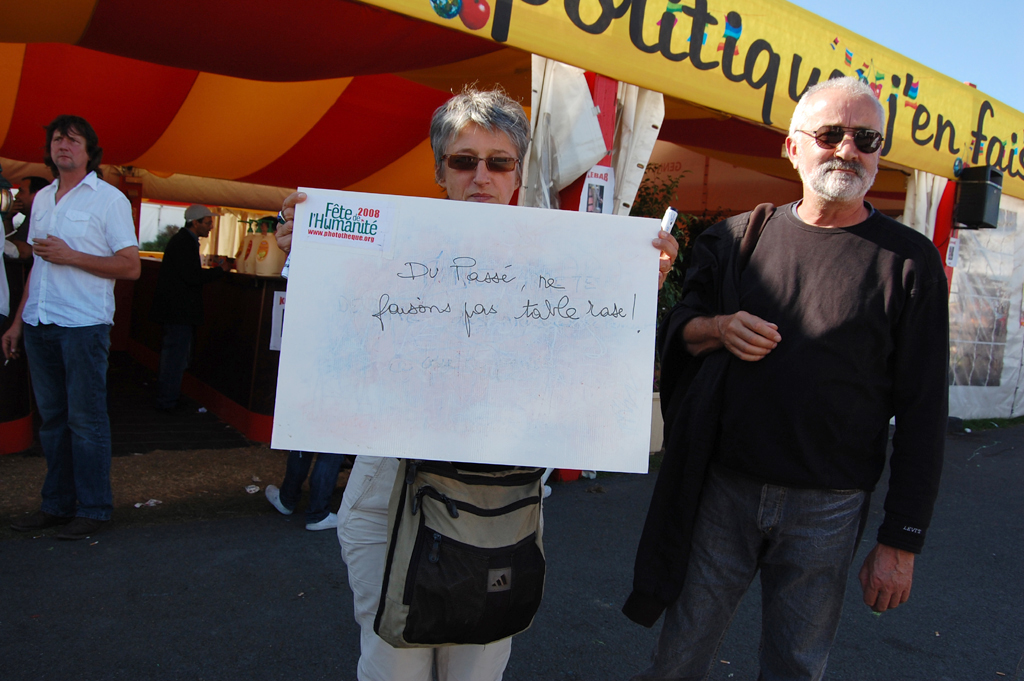 politique, j'en fais
Fête de
l'Humanité 2008
www.phototheque.org
Du Passé, ne
faisons pas table rase!
LEVI'S